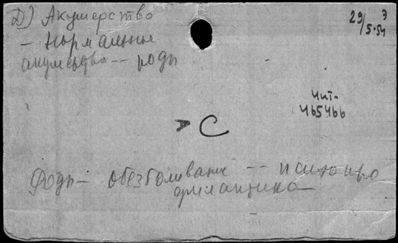 Д) Акушерство
29/5-54 Э
– нормальные
акушерства -- роды
Чит-
465466
> С
Роды – обезболивание -- психопро
филактика –